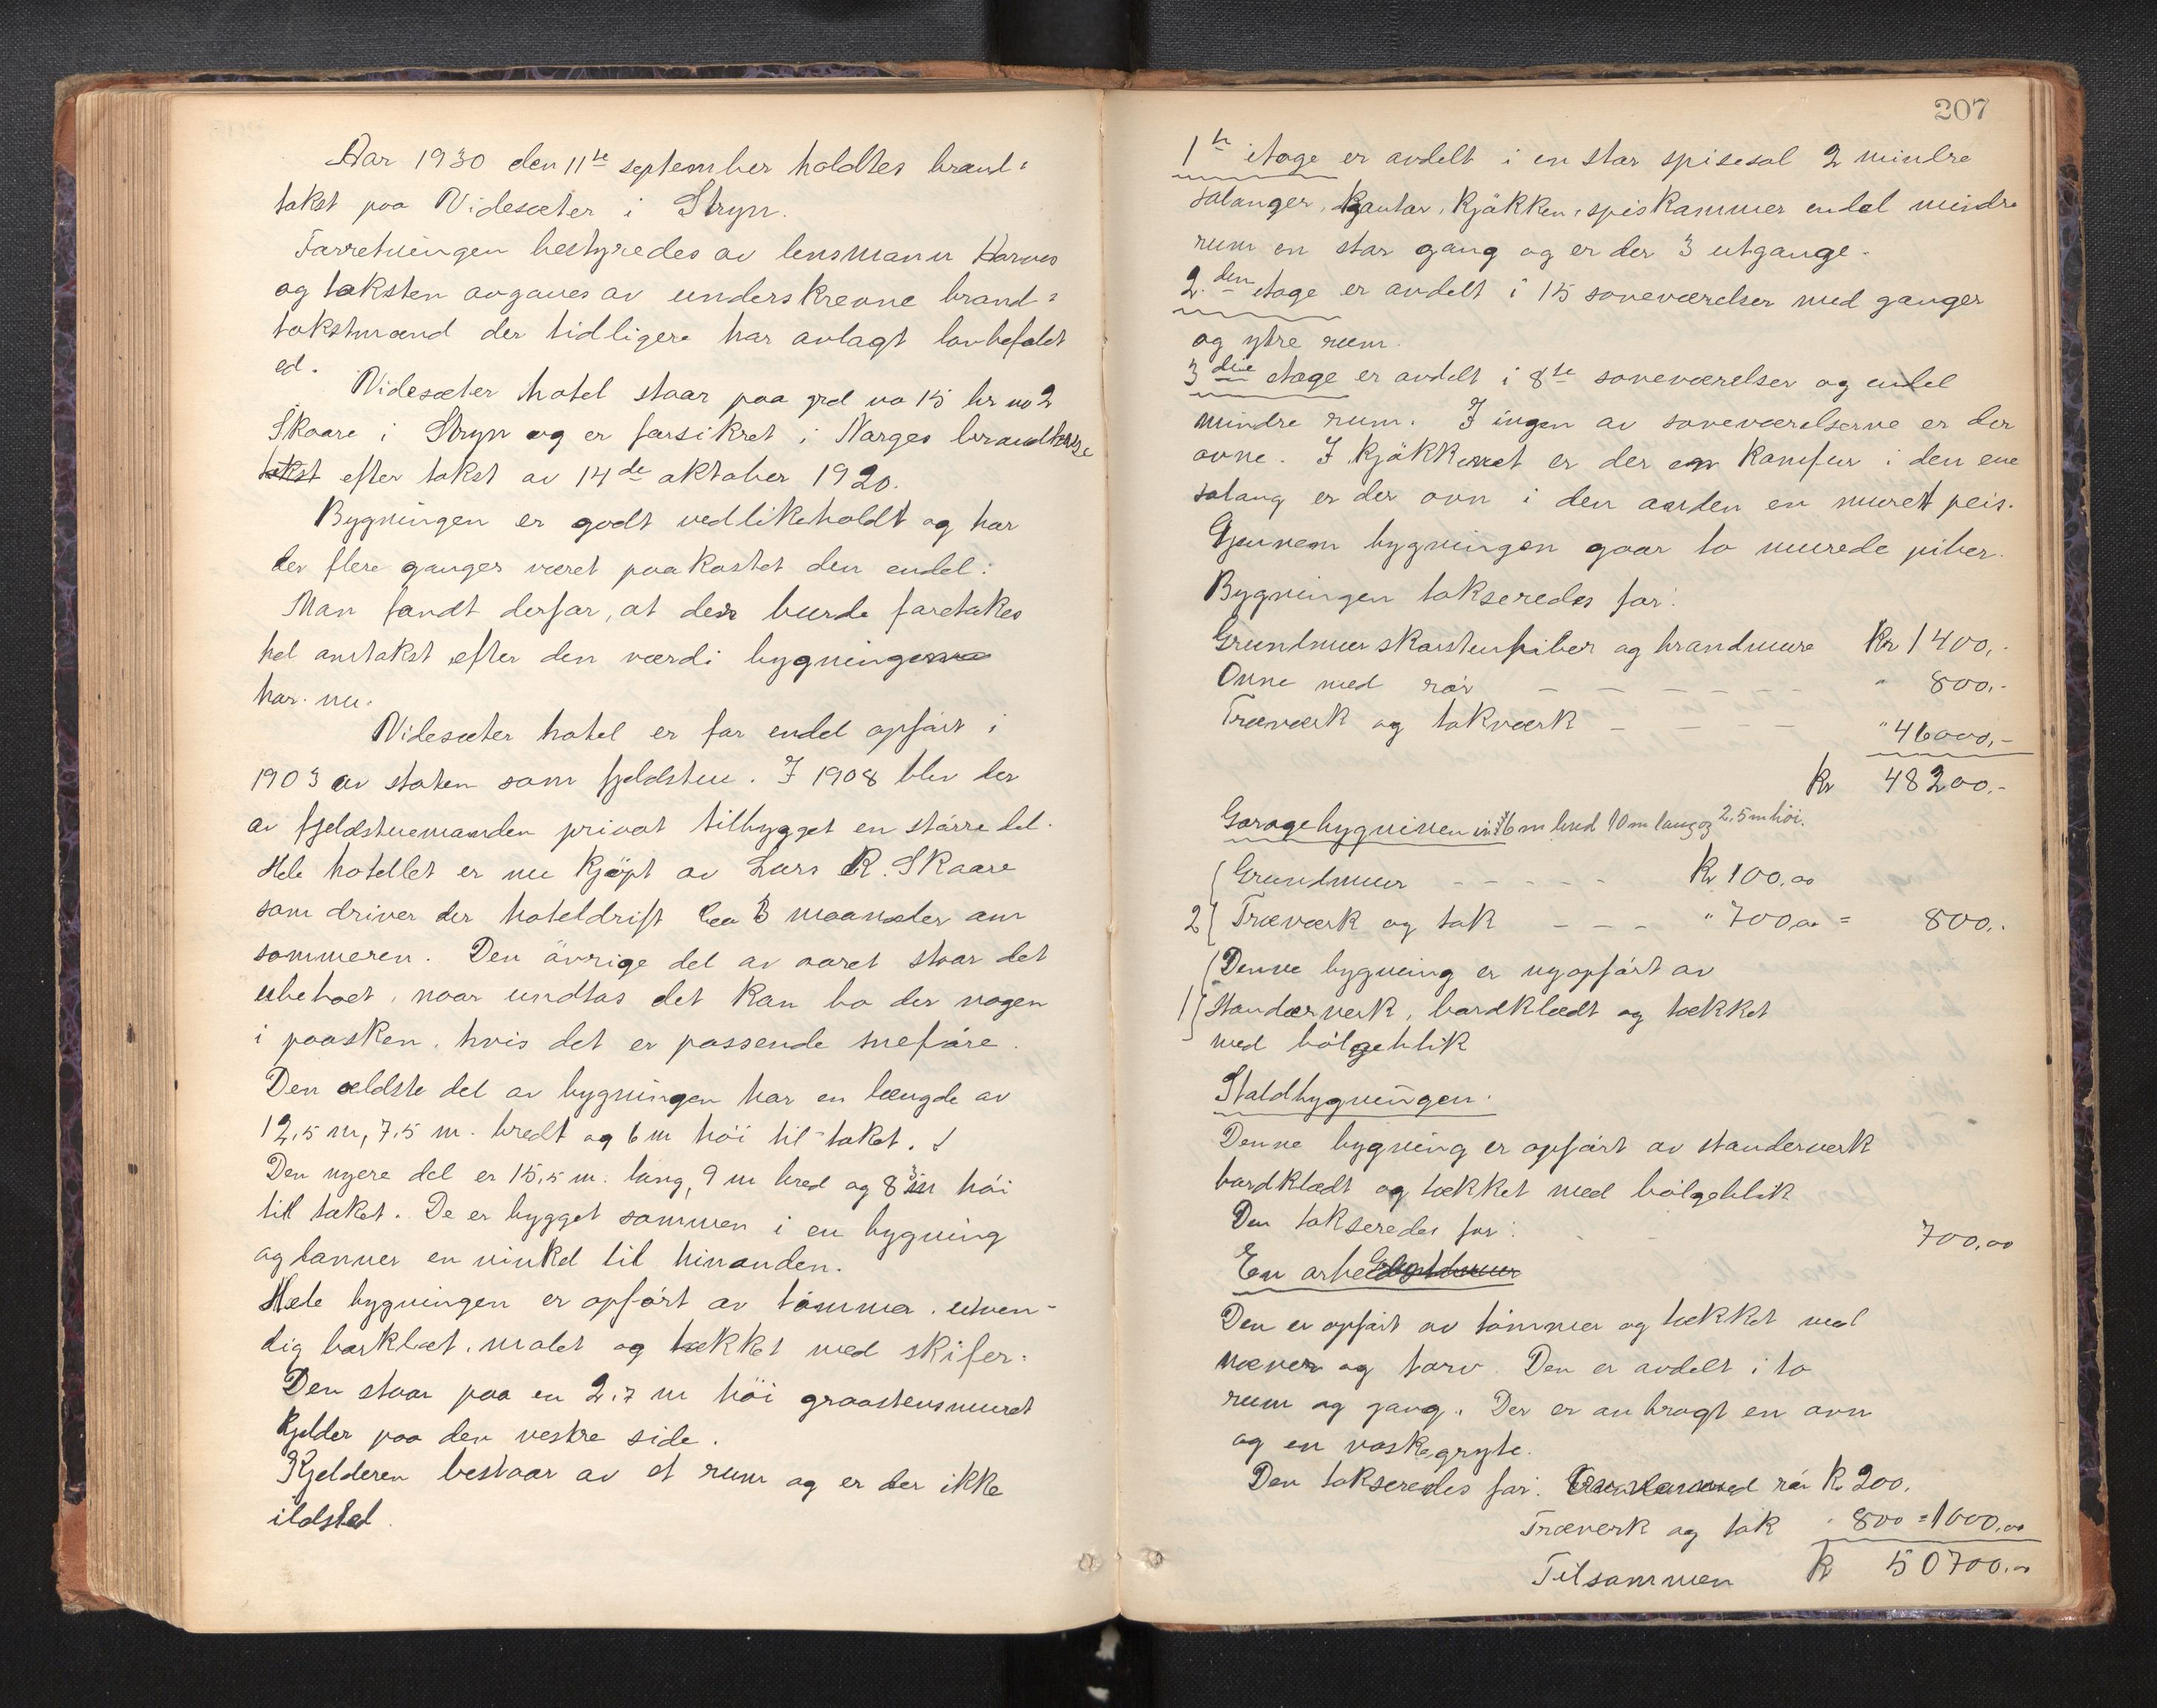 Aar 1930 den 11te september holdtes brand-
takst paa Videsæter i Stryn.
Forretningen bestyredes av lensmann
og taksten avgaves av underskrevne brand-
takstmænd der tidligere har avlagt lovbefalet
ed.
Videsæter hotel staar paa grd no 15 br no 2
Skaare i Stryn og er forsikret i Norges brandkasse
takst efter takst av 14de oktober 1920.
Bygningen er godt vedlikeholdt og har
der flere ganger været paakostet den endel:
Man fandt derfor, at der burde foretakes
hel omtakst efter den værdi bygningene
har nu.
Videsæter hotel er for endel opført i
1903 av staten som fjeldstue. I 1908 blev der
av fjeldstuemanden privat tilbygget en større del.
Hele hotellet er nu kjøpt av Lars R. Skaare
som driver der hoteldrift ca 3 maaneder om
sommeren. Den övrige del av aaret staar det
ubeboet, naar undtas det kan bo der nogen
i paasken, hvis det er passende sneføre.
Den ældste del av bygningen har en længde av
12,5 m, 7,5 m. bredt og 6 m höi til taket.
Den nyere del er 15,5 m. lang, 9 m bred og 8 m höi
til taket. De er bygget sammen i en bygning
og danner en vinkel til hinanden.
Hele bygningen er opført av tömmer, utven-
dig borklæt, malet og tækket med skifer.
Den staar paa en 2,7 m höi graastensmuret
kjelder paa den vestre side.
Kjelderen bestaar av et rum og er der ikke
ildsted.
207
1ste etage er avdelt i en stor spisesal 2 mindre
salonger, kontor, kjökken, spiskammer endel mindre
rum en stor gang og er der 3 utgange.
2.den etage er avdelt i 15 soveværelser med ganger
og ytre rum.
3die etage er avdelt i 8te soveværelser og endel
mindre rum. I ingen av soveværelserne er der
ovne. I kjökkenet er der en komfur i den ene
salong er der ovn i den anden en murett peis.
Gjennem bygningen gaar to murede piber.
Bygningen takseredes for:
Grundmur skorstenspiber og brandmure Kr 1400,-
Ovne med rör - - - - - - " 800,-
Træværk og takværk - - - - " 46000,-
Kr 48200.-
Garagebygningen 6 m bred 10 m lang og 2,5 m höi.
Grundmuur - - - - - Kr 100,00
2 { Træværk og tak - - - " 700,00 = 800,-
Denne bygning er nyopført av
1 { standerverk, bordklædt og tækket
med bölgeblik
Staldbygningen.
Denne bygning er opført av standerverk
bordklædt og tækket med bölgeblik
Den takseredes for: 700,00
En
Den er opført av tömmer og tækket med
næver og torv. Den er avdelt i to
rum og gang. Der er anbragt en ovn
og en vaskegryte.
Den takseredes for: med rör Kr 200.
Træverk og tak " 800 = 1000,00
Tilsammen Kr 50700.00